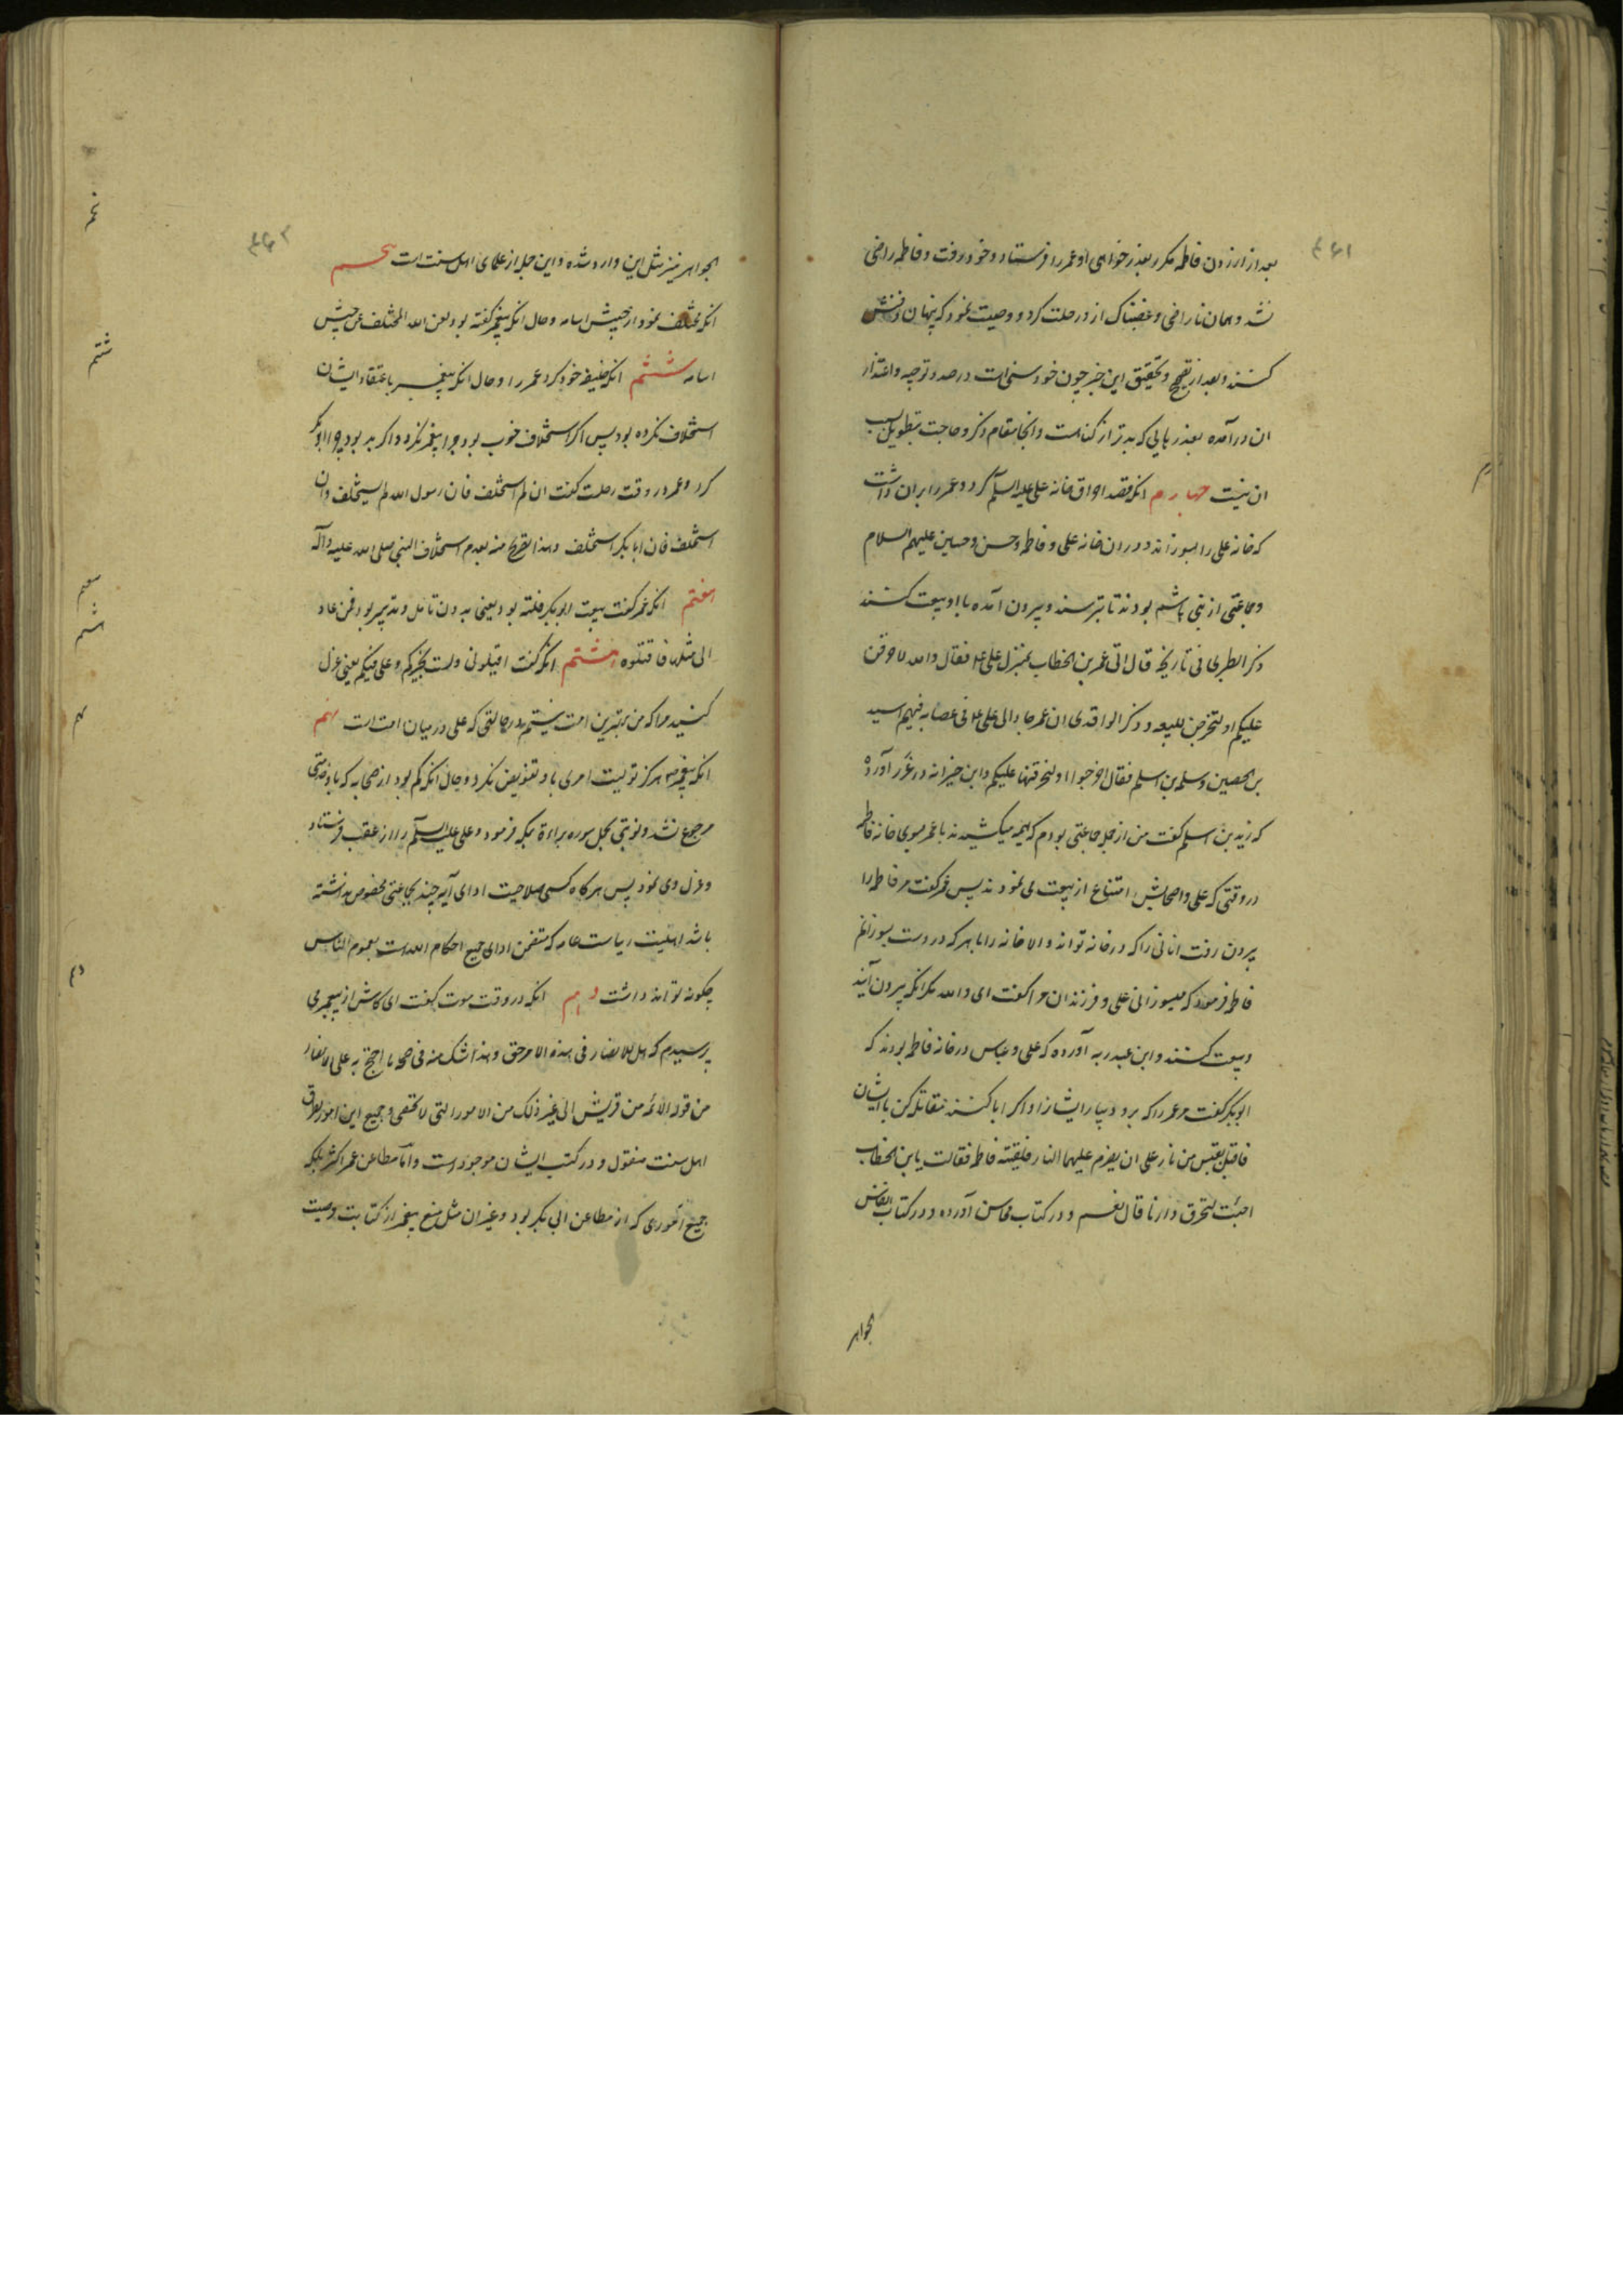 ۴۶۱
بعد از ازردن فاطمه مکرر بعذر خواهی او عمر را فرستاد و خود رفت و فاطمه راضی
نشد و همان ناراضی و غضبناک از در رحلت کرد و وصیت نمود که پنهان دفنش
کنند و بعد از تصحیح و تحقیق این خبر چون خود سنی است در صدد توجیه و اعتذار
ان درآمده بعذرهایی که بدتر از کناهست و انجا مقام ذکر و حاجت بتطویل
ان نیست چهارم انکه قصد احراق خانه علی علیه السلم کرد و عمر را بران داشت
که خانه علی را بسوزاند و دران خانه علی و فاطمه و حسن و حسین علیهم السلام
و جماعتی از بنی هاشم بودند تا بترسند و بیرون آمده با او بیعت کنند
ذکر الطبری فی تاریخه قال اتی عمر بن الخطاب بمنزل علی ع فقال والله لاحرقن
علیکم او لتخرجن للبیعه و ذکر الواقدی ان عمر جاء الی علی ع فی عصابه فیهم اسید
بن الحصین و سلمه بن اسلم فقال اخرجوا او لنحرقنها علیکم و ابن خیزانه در غرر آورده
که زید بن اسلم کفت من از جمله جماعتی بودم که هیمه میکشیدند با عمر بسوی خانه فاطمه
در وقتی که علی و اصحابش امتناع از بیعت می نمودند پس عمر کفت مر فاطمه را
بیرون رفت انانی را که در خانه تواند والا خانه را با هر که دروست بسوزانم
فاطمه فرمود که میسوزانی علی و فرزندان مرا کفت ای والله مکر انکه بیرون آیند
و بیعت کنند و ابن عبد ربه آورده که علی و عباس در خانه فاطمه بودند که
ابوبکر کفت مر عمر را که برو و بیار ایشانرا و اکر ابا کنند مقاتله کن با ایشان
فاقبل بقبس من نار علی ان یضرم علیهما النار فلقیته فاطمه فقالت یابن الخطاب
اجئت لتحرق دارنا قال نعم و در کتاب محاسن آورده و در کتاب انفاس
الجواهر
۴۶۲
الجواهر نیز مثل این وارد شده و این جمله از علمای اهل سنت است پنجم
انکه تخلف نمود از جیش اسامه و حال انکه پیغمبر کفته بود لعن الله المتخلف عن جیش
اسامه ششم انکه خلیفه خود کرد عمر را و حال انکه پیغمبر باعتقاد ایشان
استخلاف نکرده بود پس اکر استخلاف خوب بود چرا پیغمبر نکرد و اکر بد بود چرا ابوبکر
کرد و عمر در وقت رحلت کفت ان لم استخلف فان رسول الله لم یستخلف و ان
استخلف فان ابابکر استخلف و هذا تصریح منه بعدم استخلاف النبی صلی الله علیه و آله
هفتم انکه عمر کفت بیعت ابوبکر فلته بود یعنی بدون تامل و تدبیر بود فمن عاد
الی مثلها فاقتلوه هشتم انکه کفت اقیلونی و لست بخیرکم و علی فیکم یعنی عزل
کنید مرا که من بهترین امت نیستم در حالتی که علی در میان امت است نهم
انکه پیغمبر ص هرکز تولیت امری باو تفویض نکرد و حال انکه کم بود از صحابه که باو خدمتی
مرجوع نشد و نوبتی بحمل سوره براءة بمکه فرمود و علی علیه السلم را از عقب فرستاد
و عزل وی نمود پس هرکاه کسی صلاحیت ادای آیه چند بجماعتی مخصوص نداشته
باشد اهلیت ریاست عامه که متضمن ادای جمیع احکام الله است بعموم الناس
چکونه تواند داشت دهم انکه در وقت موت کفت ای کاش از پیغمبر می
پرسیدم که هل للانصار فی هذه الامر حق و هذا شک منه فی صحة ما احتج به علی الانصار
من قوله الائمه من قریش الی غیر ذلک من الامور التی لا تحصی و جمیع این امور بطرق
اهل سنت منقول و در کتب ایشان موجود است و اما مطاعن عمر اکثر بلکه
جمیع اموری که از مطاعن ابی بکر بود و غیر ان مثل منع پیغمبر از کتابت وصیت
پنجم
ششم
هفتم
هشتم
نهم
دهم